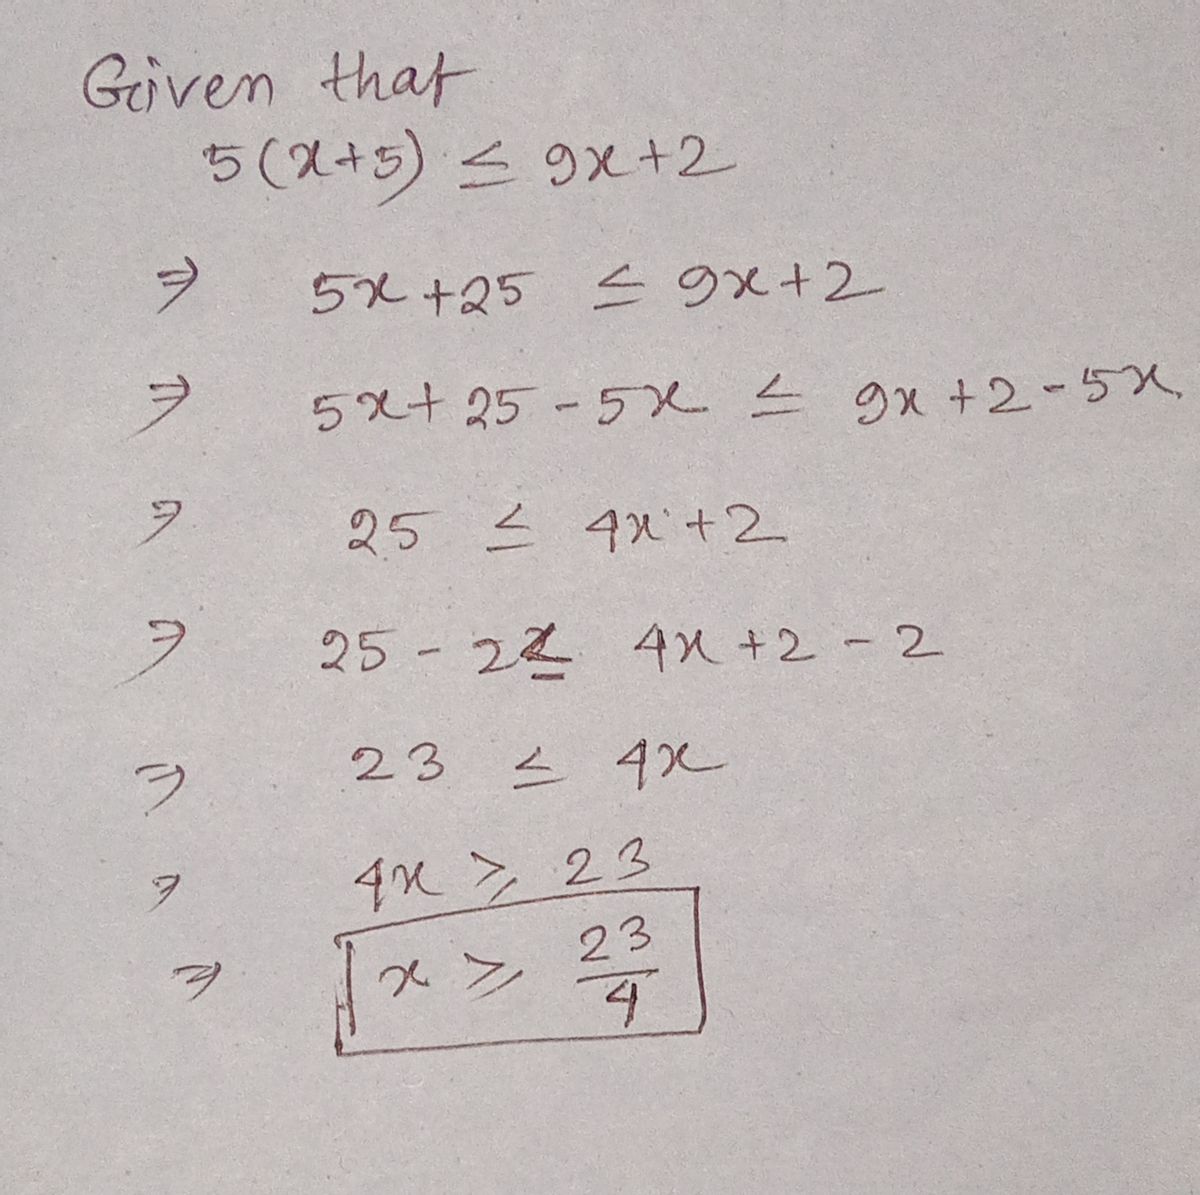 Given that
5(x+5) ≤ 9x+2
⇒ 5x+25 ≤ 9x+2
⇒ 5x+25-5x ≤ 9x+2-5x
⇒ 25 ≤ 4x+2
⇒ 25-2 ≤ 4x+2-2
⇒ 23 ≤ 4x
⇒ 4x ≥ 23
⇒ x ≥ 23/4